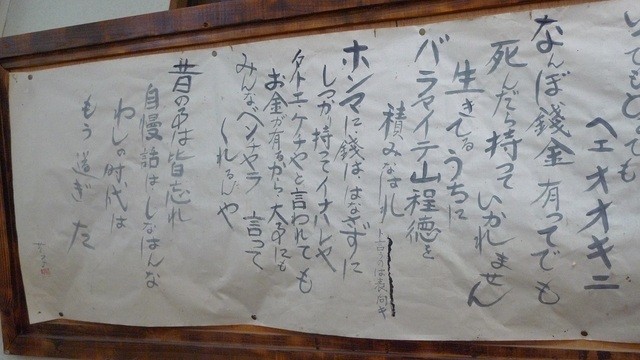 いてもひても
ヘエオオキニ
なんぼ錢金有ってでも
死んだら持っていかれません
生きてるうちに
バラマイテ山程徳を
積みなはれ
と言うのは表向きや
ホンマに錢ははなさずに
しっかり持ってイナハレヤ
タトエケチやと言われても
お金が有るから大事にも
みんなベンチャラ言って
くれるんや
昔の事は皆忘れ
自慢話はしなはんな
わしの時代は
もう過ぎた